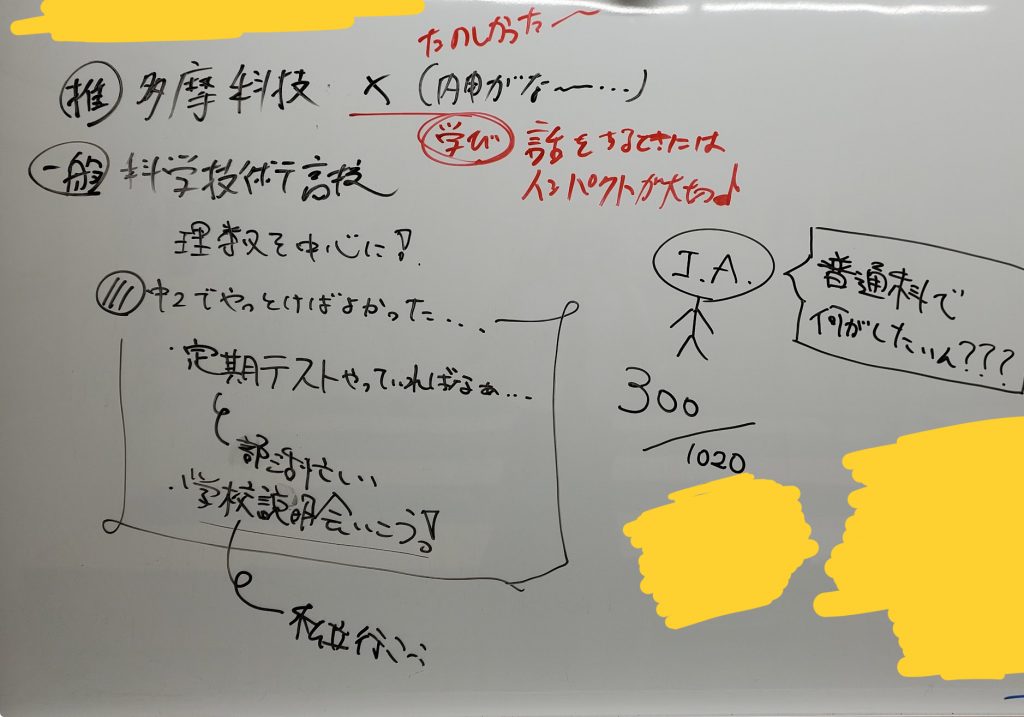 たのしかった〜
推 多摩科技 × (内申がな〜…)
学び 話をするときには
インパクトが大切♩
一般 科学技術高校
理数を中心に!
J.A.
普通科で
何がしたいん???
中2でやっとけばよかった...
・定期テストやっていればなぁ...
300
/1020
部活忙しい
・学校説明会いこう!
私立行こう